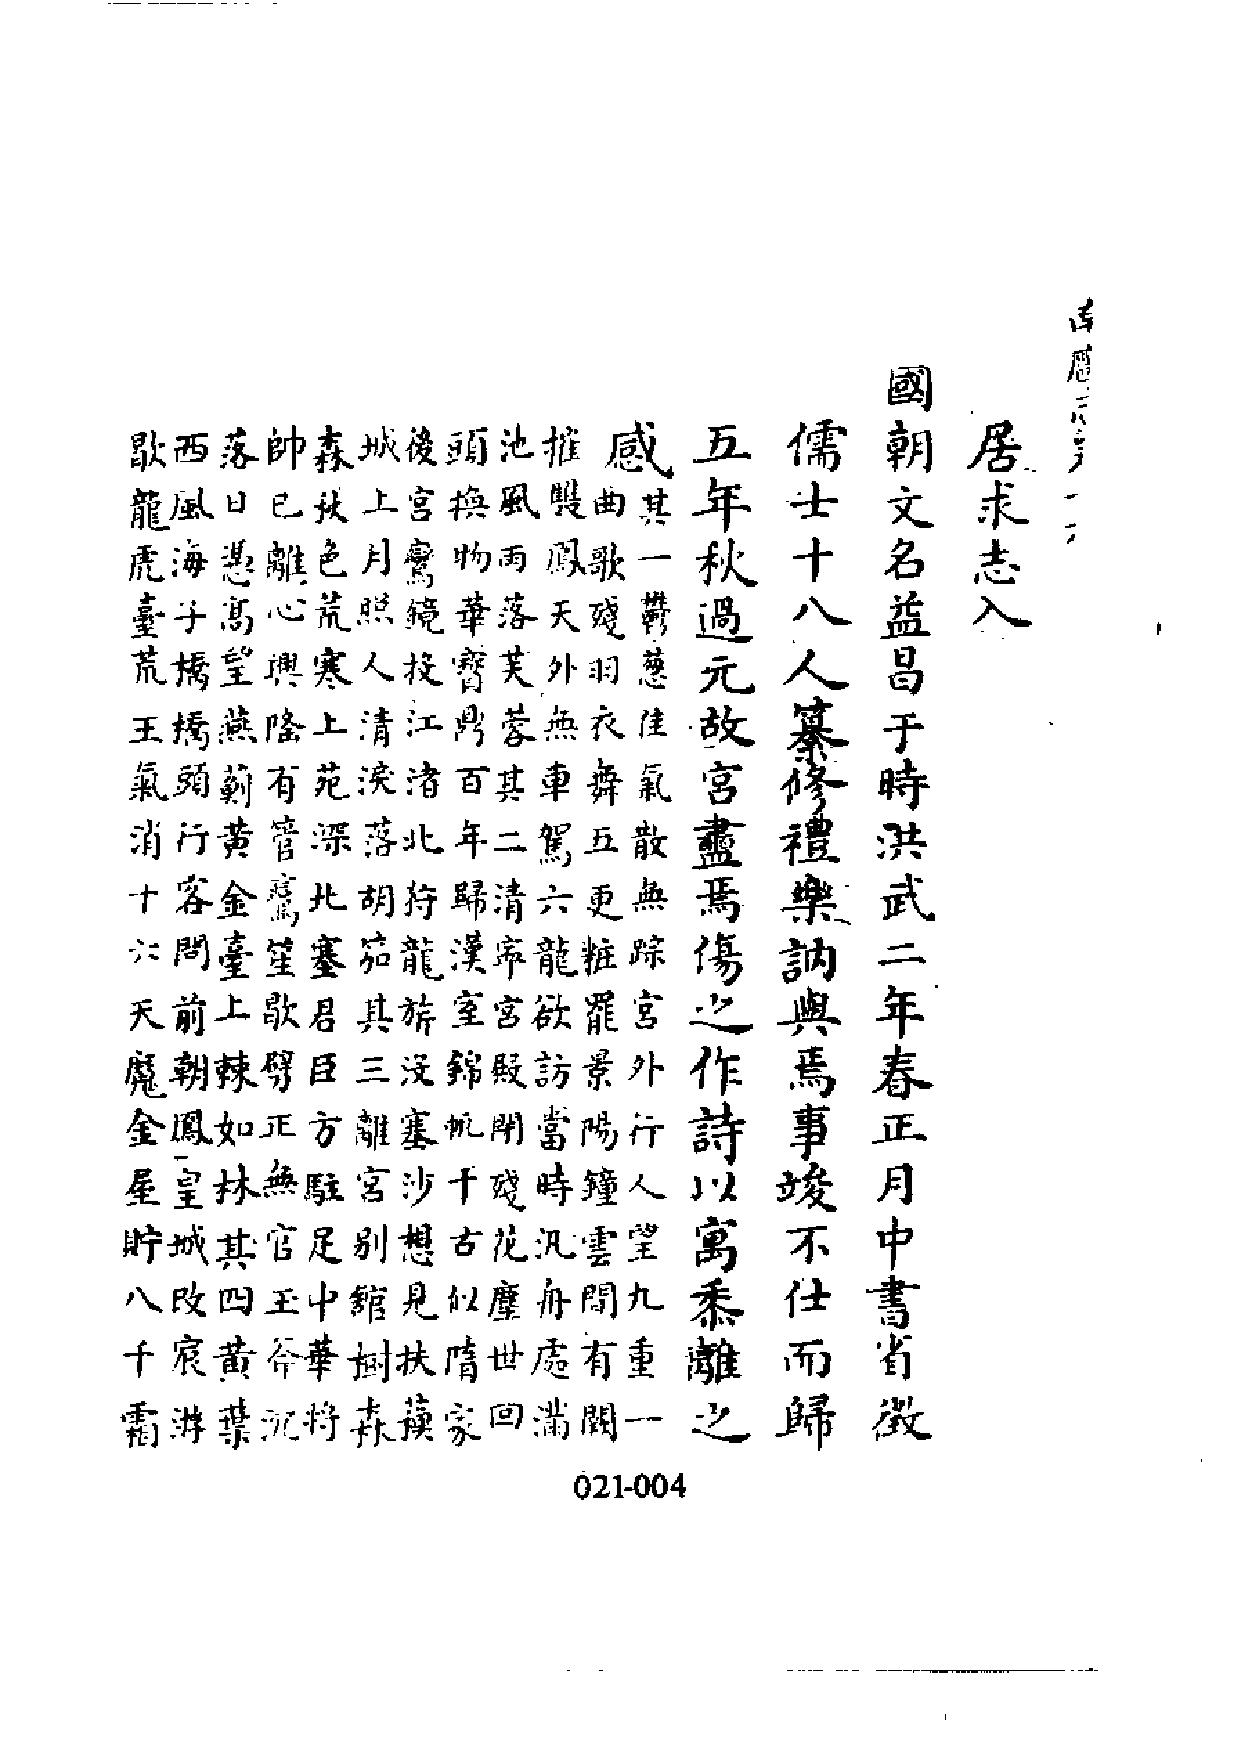 居求志入
國朝文名益昌于時洪武二年春正月中書省徵
儒士十八人纂修禮樂訥與焉事竣不仕而歸
五年秋過元故宮盡焉傷之作詩以寓黍離之
感其一鬱葱佳氣散無踪宮外行人望九重一
曲歌殘羽衣舞五更粧罷景陽鐘雲間有闕
摧雙鳳天外無車駕六龍欲訪當時汎舟處滿
池風雨落芙蓉其二清寧宮殿閉殘花塵世回
頭換物華寶鼎百年歸漢室錦帆千古似隋家
後宮鸞鏡投江渚北狩龍旂没塞沙想見扶蘓
城上月照人清淚落胡笳其三離宮別舘樹森
森秋色荒寒上苑深北塞君臣方駐足中華將
帥已離心興隆有管鸞笙歇劈正無官玉斧沉
落日憑高望燕薊黄金臺上棘如林其四黄葉
西風海子橋橋頭行客問前朝鳳皇城改宸游
歇龍虎臺荒王氣消十六天魔金屋貯八千霜
021-004